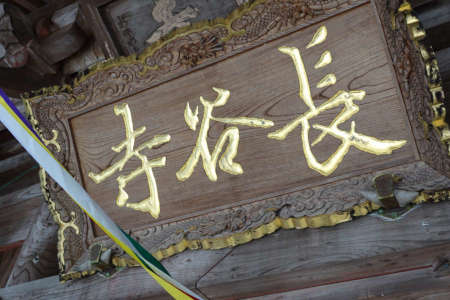 長谷寺